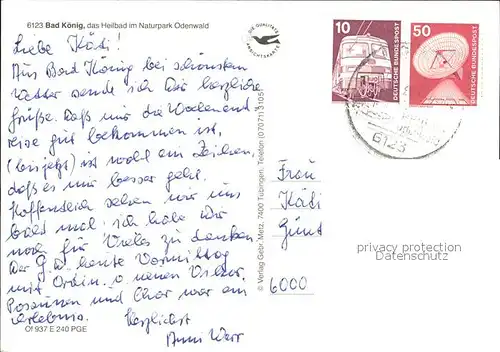 6123 Bad König, das Heilbad im Naturpark Odenwald
Liebe Kädi!
Aus Bad König bei schönstem
Wetter sende ich Dir herzliche
Grüße. Daß mir die Wochenend
reise gut bekommen ist,
(bis jetzt) ist wohl ein Zeichen,
daß es mir besser geht.
Hoffentlich sehen wir uns
bald mal. ich habe Dir
noch für Vieles zu danken
Der G.D. heute Vormittag
mit Ordin. neuen
Posaunen und Chor war ein
Erlebnis.
Herzlichst
Anni
Of 937 E 240 PGE
DIE QUALITÄTS
ANSICHTSKARTE
© Verlag Gebr. Metz, 7400 Tübingen, Telefon (07071) 31051
10
DEUTSCHE BUNDESPOST
50
DEUTSCHE BUNDESPOST
6123
Frau
Kädi
Günt
6000
privacy protection
Datenschutz